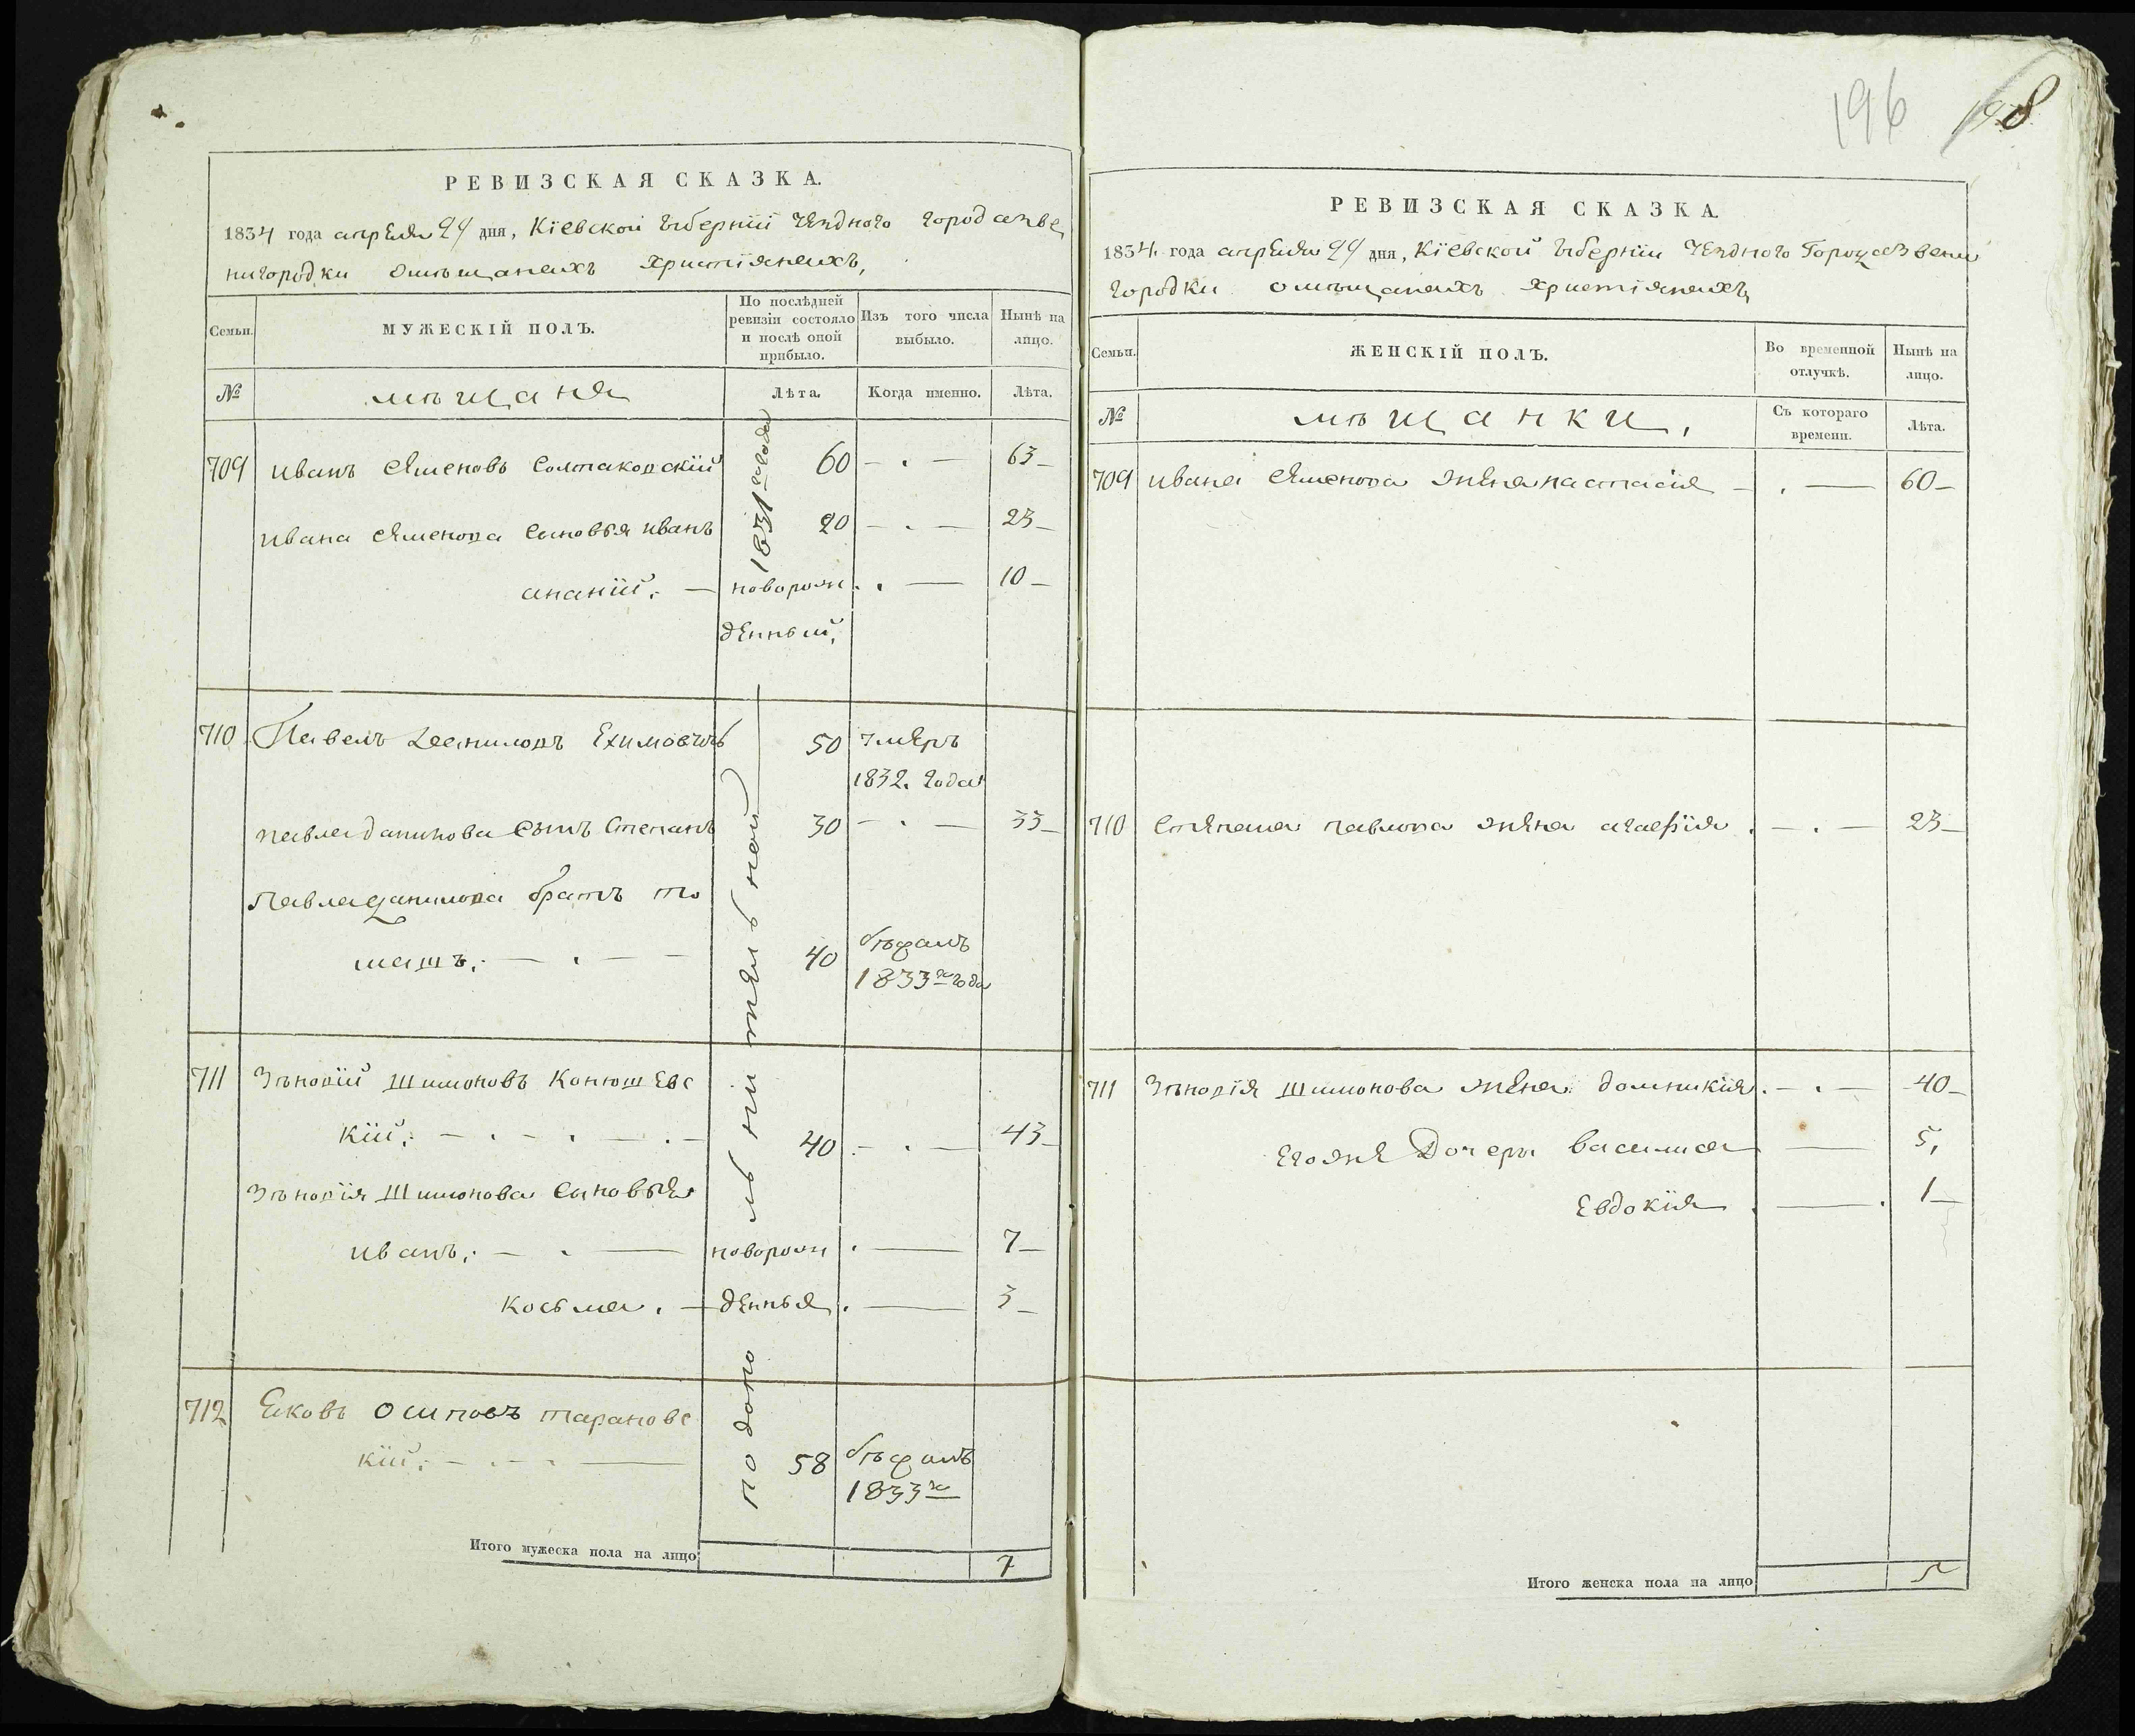 196 198
РЕВИЗСКАЯ СКАЗКА.
1834 года апреля 24 дня, Кіевской губерніи уездного города зве
нигородки омѣщанахъ христіянахъ,
Семьи.
МУЖЕСКІЙ ПОЛЪ.
По послѣдней ревизіи состояло и послѣ оной прибыло.
Изъ того числа выбыло.
Нынѣ на лицо.
№
мѣщаня
Лѣта.
Когда именно.
Лѣта.
709 иванъ семеновъ 60 — . — 63
ивана семенова сыновья иванъ 20 — . — 23
ананій. — новорож . — 10
денный,
710 Павелъ даниловъ 50 умеръ
1832. года
павла данилова сынъ степанъ 30 — . — 33
Павла данилова братъ то
машъ. 40 бѣжалъ
1833го года
711 Зѣновій Шимоновъ Конюшевс
кій. 40 — . — 43
Зѣновія Шимонова сыновья
иванъ. новорож . — 7
косьма. — денныя . — 3
712 Яковъ осиповъ тарановс
кій. 58 бѣжалъ
1833го
по дополнительной
1831го года
Итого мужеска пола на лицо 7
РЕВИЗСКАЯ СКАЗКА.
1834 года апреля 24 дня, Кіевской губерніи уездного Города звени
городки омѣщанахъ христіянахъ
Семьи.
ЖЕНСКІЙ ПОЛЪ.
Во временной отлучкѣ.
Нынѣ на лицо.
№
мѣщанки,
Съ котораго времени.
Лѣта.
709 ивана семенова жена настасія — . — 60
710 степана павлова жена агафія . — . — 23
711 Зѣновія Шимонова жена домникія . — . — 40
егоже Дочеры василиса — 5,
Евдокія . — . 1
Итого женска пола на лицо 5